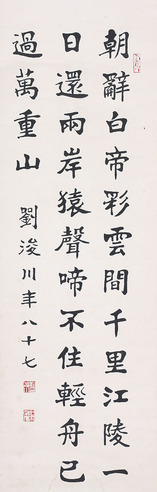 朝辭白帝彩雲間千里江陵一
日還兩岸猿聲啼不住輕舟已
過萬重山
劉浚川年八十七